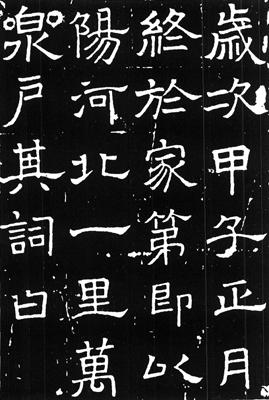 歳次甲子正月
終於家第即以
陽河北一里萬
泉戸其詞曰